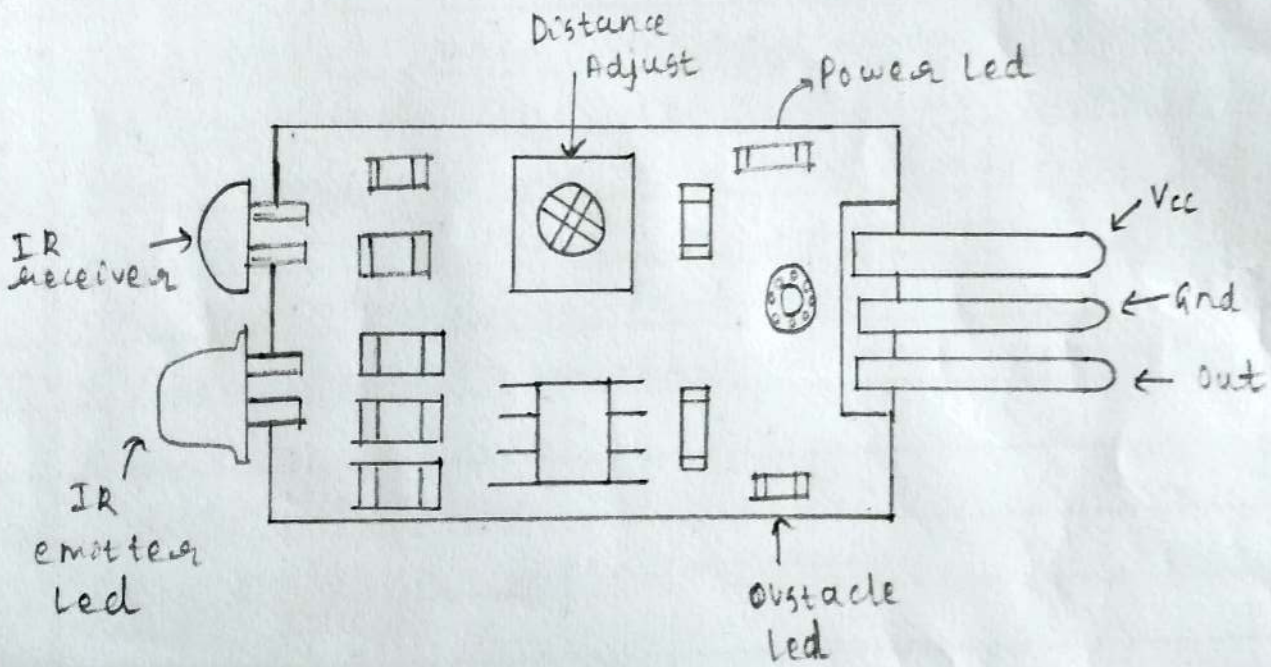 Distance
Adjust
Power Led
Vcc
IR
receiver
Gnd
Out
IR
emotter
Led
Obstacle
led